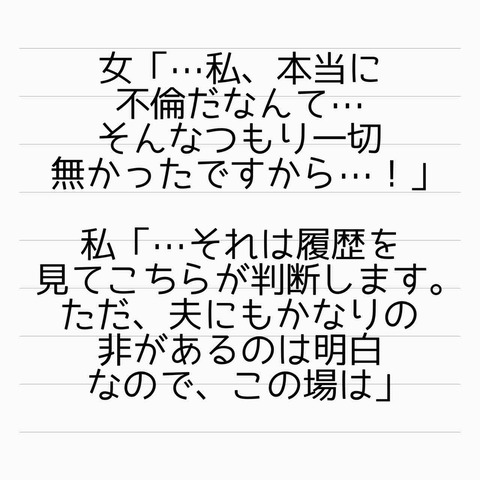 女「…私、本当に
不倫だなんて…
そんなつもり一切
無かったですから…！」
私「…それは履歴を
見てこちらが判断します。
ただ、夫にもかなりの
非があるのは明白
なので、この場は」